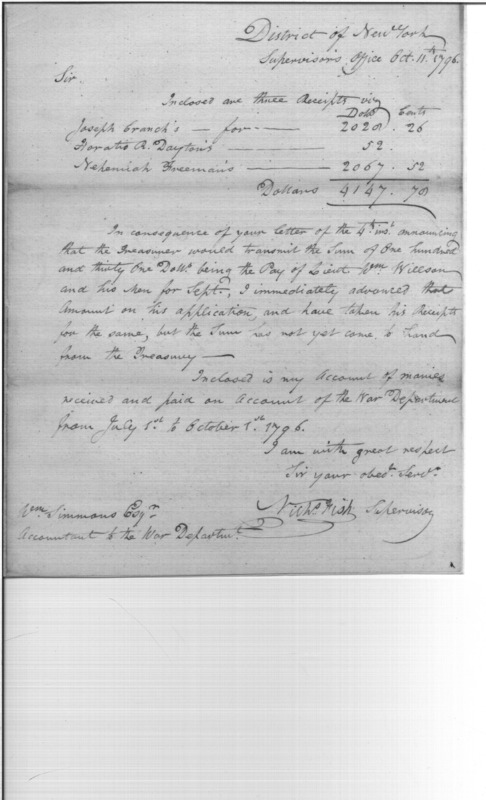 District of New York
Supervisor's Office Oct. 11th 1796.
Sir.
Inclosed are three Receipts viz
Dolls Cents
Joseph Cranch's — for — 2028 . 26
Horatio R. Dayton's — 52 .
Nehemiah Freeman's — 2067 . 52
Dollars 4147 . 78
In consequence of your letter of the 4th inst. announcing
that the Treasurer would transmit the Sum of One hundred
and thirty One Dolls. being the Pay of Lieut. Wm Willson
and his Men for Septr., I immediately advanced that
Amount on his application, and have taken his Receipts
for the same, but the Sum has not yet come to hand
from the Treasury —
Inclosed is my Account of monies
received and paid on Account of the War Department
from July 1st to October 1st 1796.
I am with great respect
Sir your obedt. Servt.
Nichs. Fish Supervisor
Wm. Simmons Esqr.
Accountant to the War Departmt.